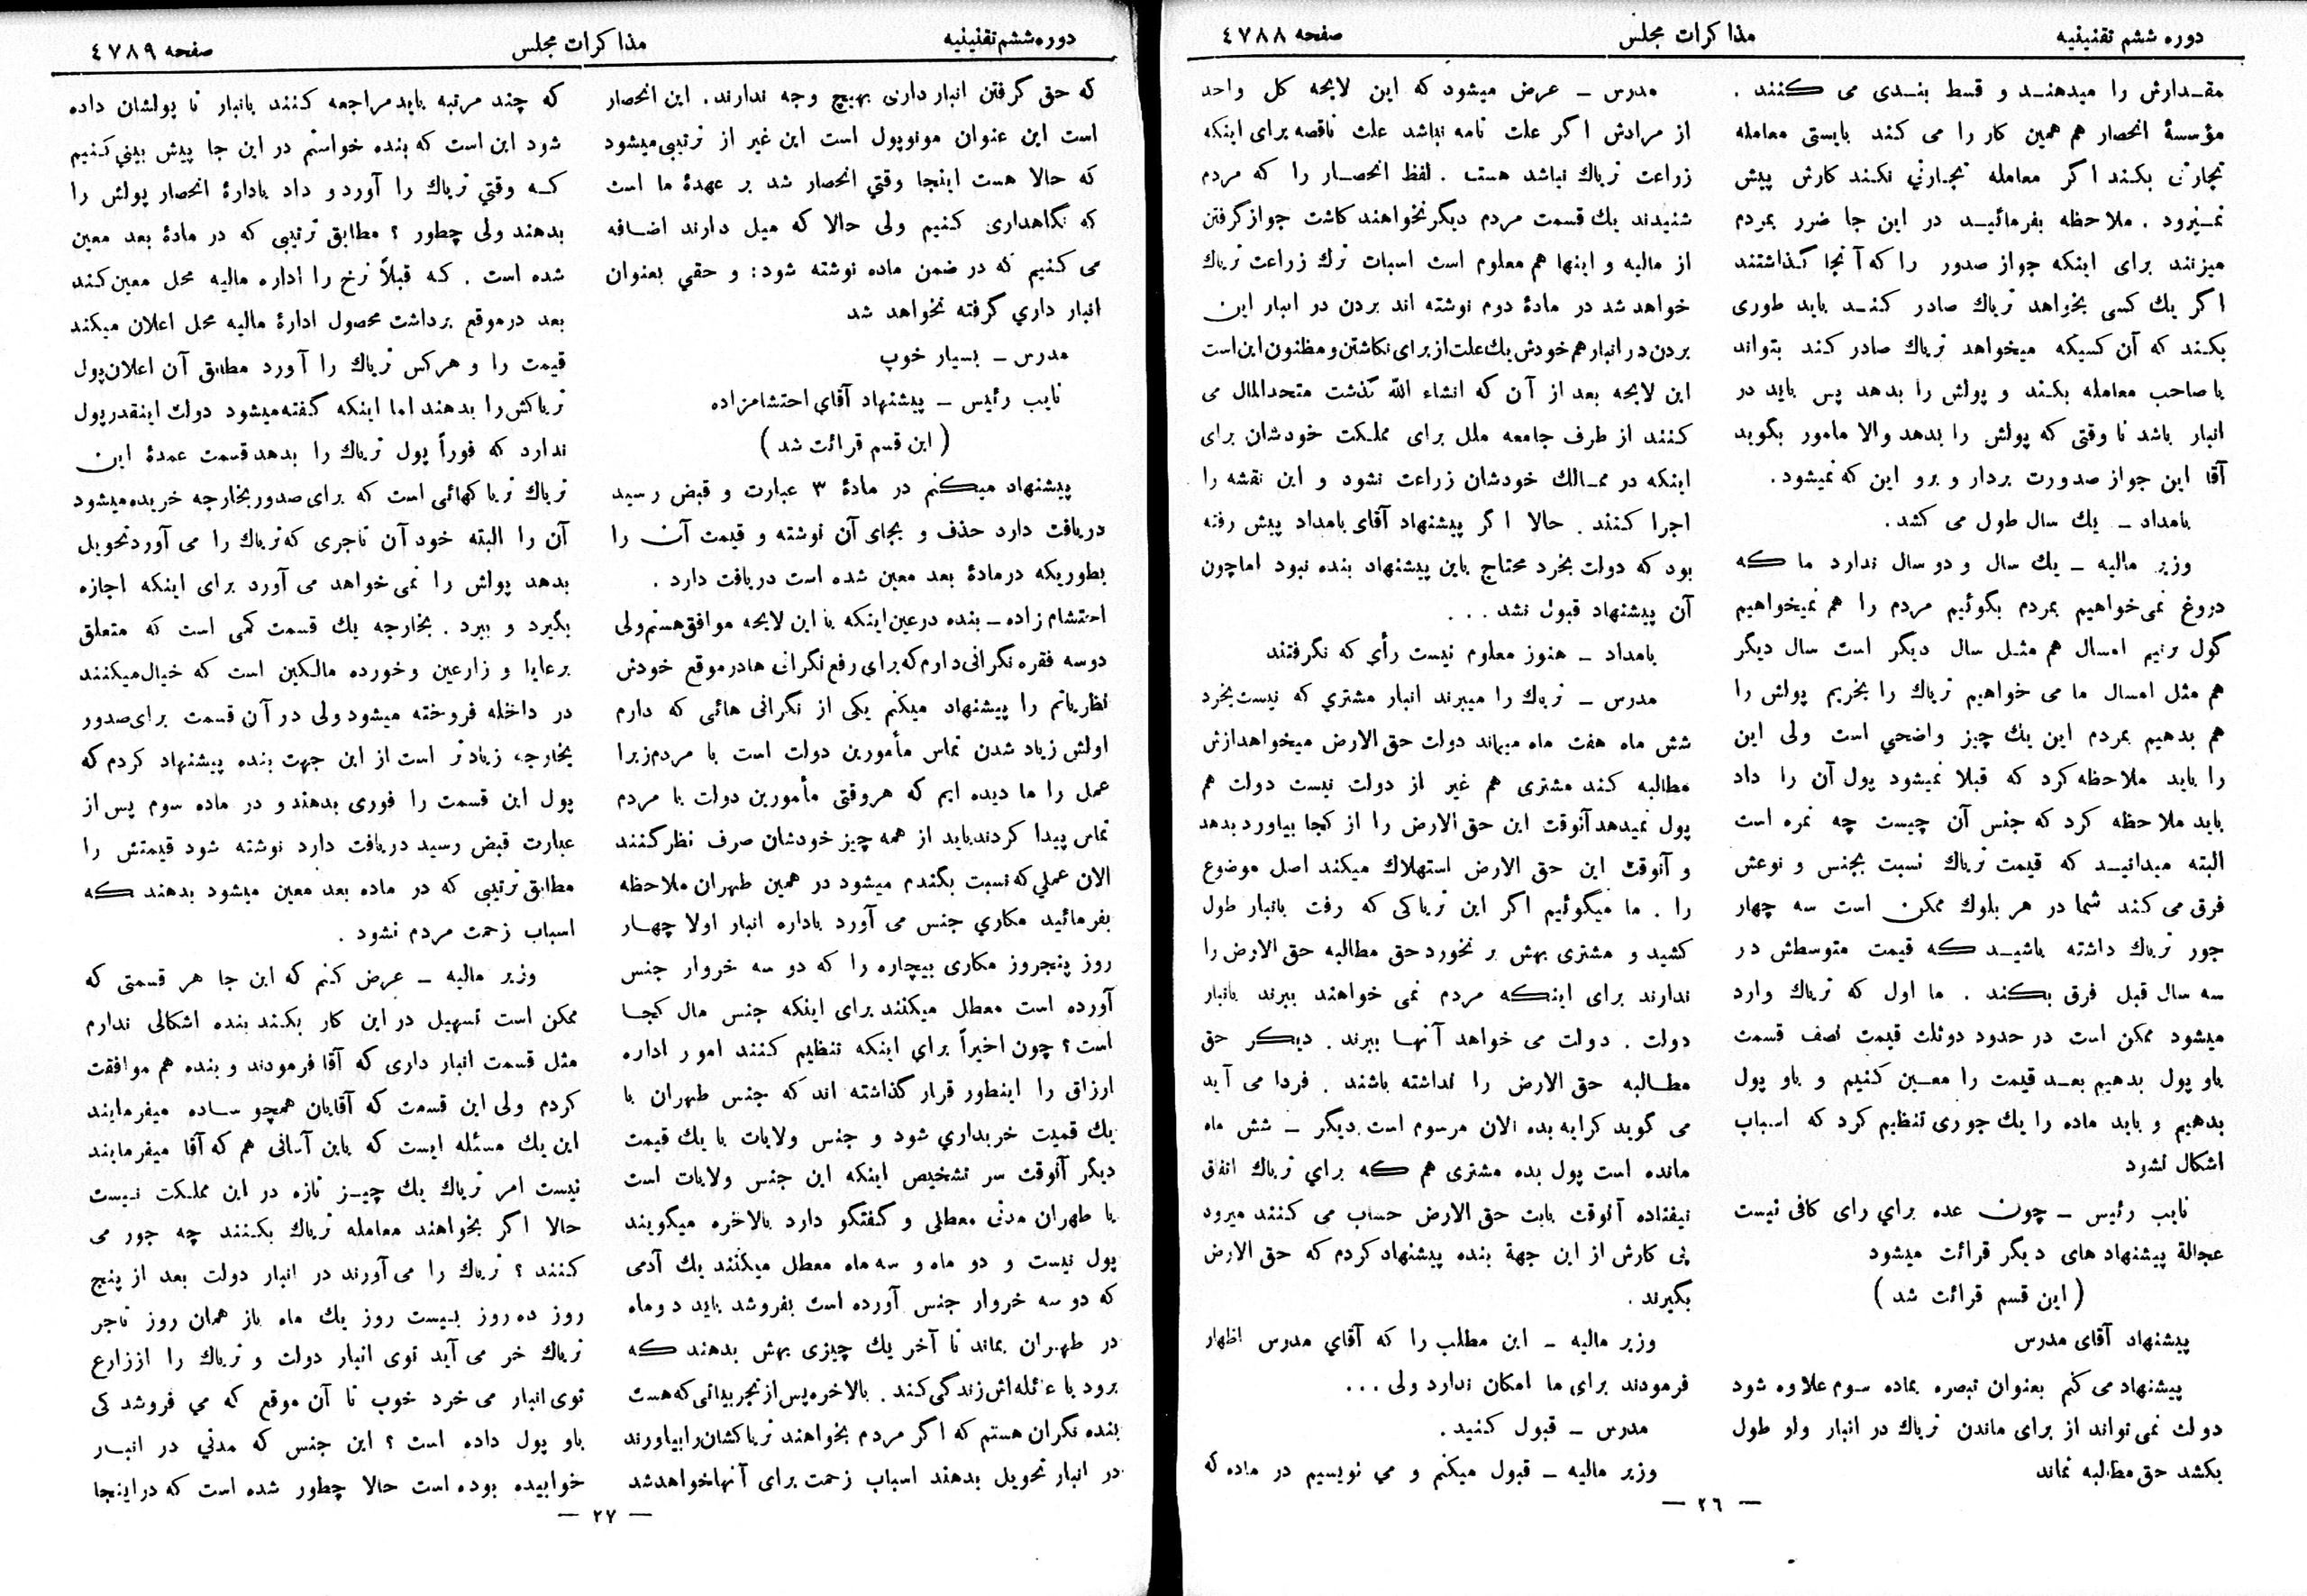 دوره ششم تقنینیه
مذاکرات مجلس
صفحه ٤٧٨٨
مقدارش را میدهند و قسط بندی می کنند .
مؤسسهٔ انحصار هم همین کار را می کند بایستی معامله
تجارتی بکند اگر معامله تجارتی نکند کارش پیش
نمیرود . ملاحظه بفرمائید در این جا ضرر بمردم
میزنند برای اینکه جواز صدور را که آنجا گذاشتند
اگر یك کسی بخواهد تریاك صادر کند باید طوری
بکند که آن کسیکه میخواهد تریاك صادر کند بتواند
با صاحب معامله بکند و پولش را بدهد پس باید در
انبار باشد تا وقتی که پولش را بدهد والا مامور بگوید
آقا این جواز صدورت بردار و برو این که نمیشود.
بامداد ـ یك سال طول می کشد .
وزیر مالیه ـ یك سال و دو سال ندارد ما که
دروغ نمی‌خواهیم بمردم بگوئیم مردم را هم نمیخواهیم
گول بزنیم امسال هم مثل سال دیگر است سال دیگر
هم مثل امسال ما می خواهیم تریاك را بخریم پولش را
هم بدهیم بمردم این یك چیز واضحی است ولی این
را باید ملاحظه کرد که قبلا نمیشود پول آن را داد
باید ملاحظه کرد که جنس آن چیست چه نمره است
البته میدانید که قیمت تریاك نسبت بجنس و نوعش
فرق می کند شما در هر بلوك ممکن است سه چهار
جور تریاك داشته باشید که قیمت متوسطش در
سه سال قبل فرق بکند . ما اول که تریاك وارد
میشود ممکن است در حدود دوثلث قیمت نصف قسمت
باو پول بدهیم بعد قیمت را معین کنیم و باو پول
بدهیم و باید ماده را یك جوری تنظیم کرد که اسباب
اشکال نشود
نایب رئیس ـ چون عده برای رای کافی نیست
عجالة پیشنهاد های دیگر قرائت میشود
( این قسم قرائت شد )
پیشنهاد آقای مدرس
پیشنهاد می کنم بعنوان تبصره بماده سوم علاوه شود
دولت نمی تواند از برای ماندن تریاك در انبار ولو طول
بکشد حق مطالبه نماند
مدرس ـ عرض میشود که این لایحه کل واحد
از مرادش اگر علت تامه نباشد علت ناقصه برای اینکه
زراعت تریاك نباشد هست . لفظ انحصار را که مردم
شنیدند یك قسمت مردم دیگر نخواهند کاشت جواز گرفتن
از مالیه و اینها هم معلوم است اسباب ترك زراعت تریاك
خواهد شد در مادهٔ دوم نوشته اند بردن در انبار این
بردن در انبار هم خودش یك علت از برای نکاشتن و مظنون این است
این لایحه بعد از آن که انشاء الله گذشت متحدالمال می
کنند از طرف جامعه ملل برای مملکت خودشان برای
اینکه در ممالك خودشان زراعت نشود و این نقشه را
اجرا کنند . حالا اگر پیشنهاد آقای بامداد پیش رفته
بود که دولت بخرد محتاج باین پیشنهاد بنده نبود اما چون
آن پیشنهاد قبول نشد ...
بامداد ـ هنوز معلوم نیست رأی که نگرفتند
مدرس ـ تریاك را میبرند انبار مشتری که نیست بخرد
شش ماه هفت ماه میماند دولت حق الارض میخواهد ازش
مطالبه کند مشتری هم غیر از دولت نیست دولت هم
پول نمیدهد آنوقت این حق الارض را از کجا بیاورد بدهد
و آنوقت این حق الارض استهلاك میکند اصل موضوع
را . ما میگوئیم اگر این تریاکی که رفت بانبار طول
کشید و مشتری بهش بر نخورد حق مطالبه حق الارض را
ندارند برای اینکه مردم نمی خواهند ببرند بانبار
دولت . دولت می خواهد آنها ببرند . دیگر حق
مطالبه حق الارض را نداشته باشند . فردا می آید
می گوید کرایه بده الان مرسوم است دیگر ـ شش ماه
مانده است پول بده مشتری هم که برای تریاك اتفاق
نیفتاده آنوقت بابت حق الارض حساب می کنند میرود
پی کارش از این جهة بنده پیشنهاد کردم که حق الارض
بگیرند .
وزیر مالیه ـ این مطلب را که آقای مدرس اظهار
فرمودند برای ما امکان ندارد ولی ...
مدرس ـ قبول کنید .
وزیر مالیه ـ قبول میکنم و می نویسیم در ماده که
ـ ٢٦ ـ
دوره ششم تقنینیه
مذاکرات مجلس
صفحه ٤٧٨٩
که حق گرفتن انبار داری بهیچ وجه ندارند . این انحصار
است این عنوان مونوپول است این غیر از ترتیبی میشود
که حالا هست اینجا وقتی انحصار شد بر عهدهٔ ما است
که نگاهداری کنیم ولی حالا که میل دارند اضافه
می کنیم که در ضمن ماده نوشته شود: و حقی بعنوان
انبار داری گرفته نخواهد شد
مدرس ـ بسیار خوب
نایب رئیس ـ پیشنهاد آقای احتشامزاده
( این قسم قرائت شد )
پیشنهاد میکنم در مادهٔ ٣ عبارت و قبض رسید
دریافت دارد حذف و بجای آن نوشته و قیمت آن را
بطوریکه در مادهٔ بعد معین شده است دریافت دارد .
احتشام زاده ـ بنده در عین اینکه با این لایحه موافق هستم ولی
دو سه فقره نگرانی دارم که برای رفع نگرانی ها در موقع خودش
نظریاتم را پیشنهاد میکنم یکی از نگرانی هائی که دارم
اولش زیاد شدن تماس مأمورین دولت است با مردم زیرا
عمل را ما دیده ایم که هر وقتی مأمورین دولت با مردم
تماس پیدا کردند باید از همه چیز خودشان صرف نظر کنند
الان عملی که نسبت بگندم میشود در همین طهران ملاحظه
بفرمائید مکاری جنس می آورد باداره انبار اولا چهار
روز پنجروز مکاری بیچاره را که دو سه خروار جنس
آورده است معطل میکنند برای اینکه جنس مال کجا
است ؟ چون اخیراً برای اینکه تنظیم کنند امور اداره
ارزاق را اینطور قرار گذاشته اند که جنس طهران با
یك قمیت خریداری شود و جنس ولایات با یك قیمت
دیگر آنوقت سر تشخیص اینکه این جنس ولایات است
یا طهران مدتی معطلی و گفتگو دارد بالاخره میگویند
پول نیست و دو ماه و سه ماه معطل میکنند یك آدمی
که دو سه خروار جنس آورده است بفروشد باید دوماه
در طهران بماند تا آخر یك چیزی بهش بدهند که
برود با عائله اش زندگی کند . بالاخره پس از تجربیاتی که هست
بنده نگران هستم که اگر مردم بخواهند تریاکشان را بیاورند
در انبار تحویل بدهند اسباب زحمت برای آنها خواهد شد
که چند مرتبه باید مراجعه کنند بانبار تا پولشان داده
شود این است که بنده خواستم در این جا پیش بینی کنیم
که وقتی تریاك را آورد و داد بادارهٔ انحصار پولش را
بدهند ولی چطور ؟ مطابق ترتیبی که در مادهٔ بعد معین
شده است . که قبلاً نرخ را اداره مالیه محل معین کند
بعد در موقع برداشت محصول ادارهٔ مالیه محل اعلان میکند
قیمت را و هر کس تریاك را آورد مطابق آن اعلان پول
تریاکش را بدهند اما اینکه گفته میشود دولت اینقدر پول
ندارد که فوراً پول تریاك را بدهد قسمت عمدهٔ این
تریاك تریاکهائی است که برای صدور بخارجه خریده میشود
آن را البته خود آن تاجری که تریاك را می آورد تحویل
بدهد پولش را نمی خواهد می آورد برای اینکه اجازه
بگیرد و ببرد . بخارجه یك قسمت کمی است که متعلق
برعایا و زارعین و خورده مالکین است که خیال میکنند
در داخله فروخته میشود ولی در آن قسمت برای صدور
بخارجه زیادتر است از این جهت بنده پیشنهاد کردم که
پول این قسمت را فوری بدهند و در ماده سوم پس از
عبارت قبض رسید دریافت دارد نوشته شود قیمتش را
مطابق ترتیبی که در ماده بعد معین میشود بدهند که
اسباب زحمت مردم نشود .
وزیر مالیه ـ عرض کنم که این جا هر قسمتی که
ممکن است تسهیل در این کار بکند بنده اشکالی ندارم
مثل قسمت انبار داری که آقا فرمودند و بنده هم موافقت
کردم ولی این قسمت که آقایان همچو ساده میفرمایند
این یك مسئله ایست که باین آسانی هم که آقا میفرمایند
نیست امر تریاك یك چیز تازه در این مملکت نیست
حالا اگر بخواهند معامله تریاك بکنند چه جور می
کنند ؟ تریاك را می آورند در انبار دولت بعد از پنج
روز ده روز بیست روز یك ماه باز همان روز تاجر
تریاك خر می آید توی انبار دولت و تریاك را از زارع
توی انبار می خرد خوب تا آن موقع که می فروشد کی
باو پول داده است ؟ این جنس که مدتی در انبار
خوابیده بوده است حالا چطور شده است که در اینجا
ـ ٢٧ ـ